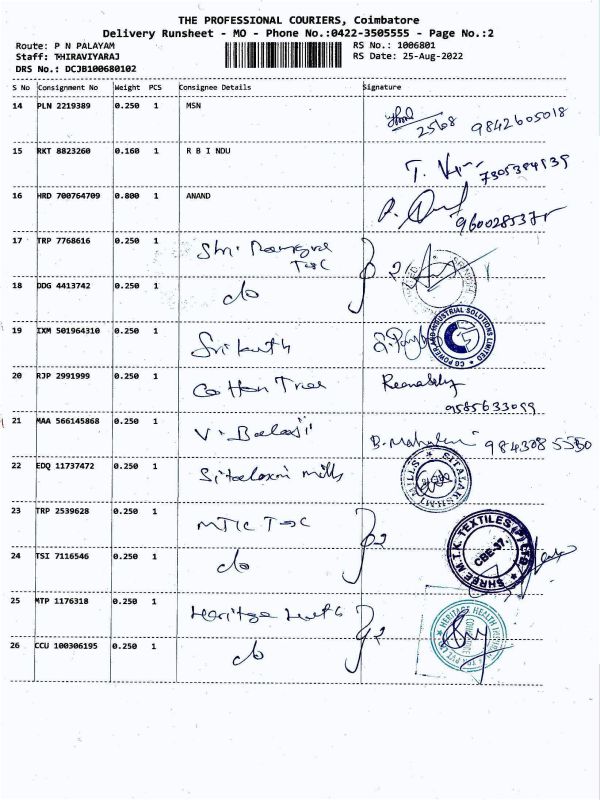 THE PROFESSIONAL COURIERS, Coimbatore
Delivery Runsheet - MO - Phone No.:0422-3505555 - Page No.:2
Route: P N PALAYAM RS No.: 1006801
Staff: THIRAVIYARAJ RS Date: 25-Aug-2022
DRS No.: DCJB100680102
S No Consignment No Weight PCS Consignee Details Signature
14 PLN 2219389 0.250 1 MSN
2568 9842605018
15 RKT 8823260 0.160 1 R B I NDU
16 HRD 700764709 0.800 1 ANAND
17 TRP 7768616 0.250 1 Shri Tex
18 DDG 4413742 0.250 1 do
19 IXM 501964310 0.250 1 Srikanth
CG POWER AND INDUSTRIAL SOLUTIONS LIMITED
20 RJP 2991999 0.250 1 Cotton Tree
9585633099
21 MAA 566145868 0.250 1 V. Balaji
22 EDQ 11737472 0.250 1 Sitalaxmi mills
SITALAKSHMI MILLS
23 TRP 2539628 0.250 1 MTK Tex
24 TSI 7116546 0.250 1 do
SHREE M.T.K. TEXTILES (P) LTD CBE-37.
25 MTP 1176318 0.250 1 Heritage
26 CCU 100306195 0.250 1 do
HERITAGE HEALTH